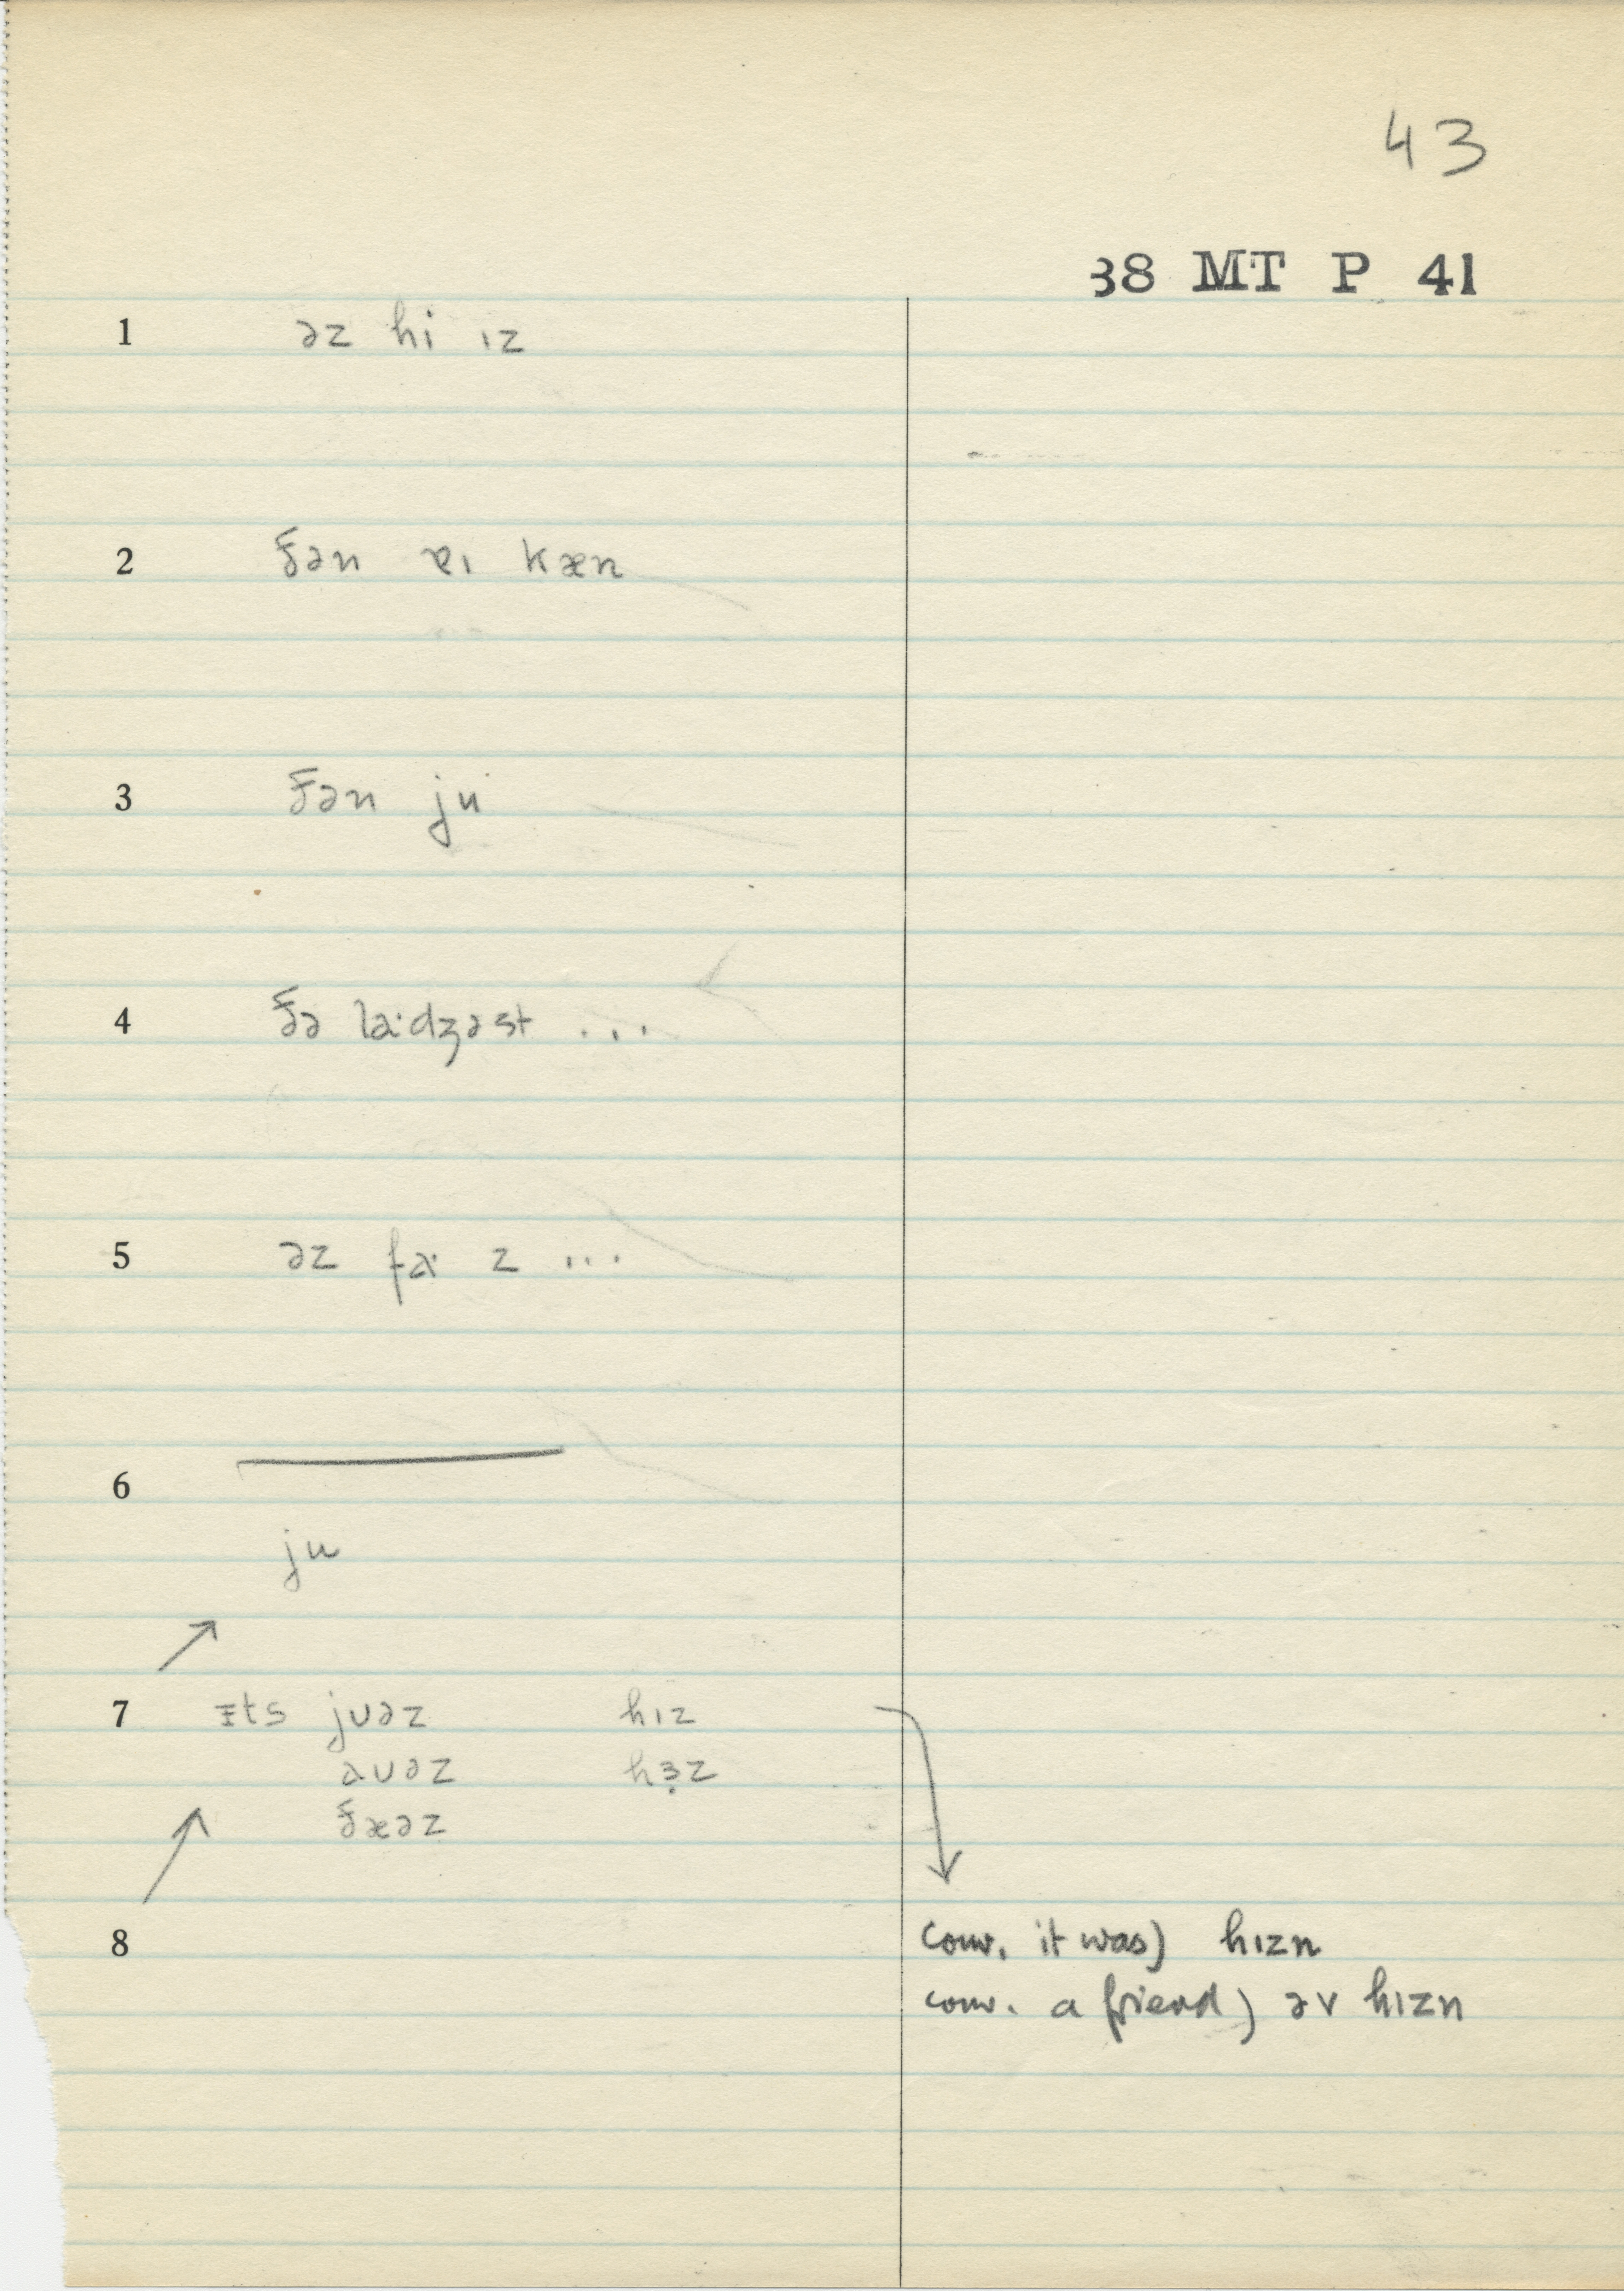 43
38 MT P 41
1 əz hi ɪz
2 ðən ɐɪ kæn
3 ðən ju
4 ðə laˑdʒəst ...
5 əz faˑ z ...
6
ju
7 ɪts jʊəz hɪz
aʊəz hɜ̣z
ðæəz
8 conv. it was) hɪzn
conv. a friend) əv hɪzn